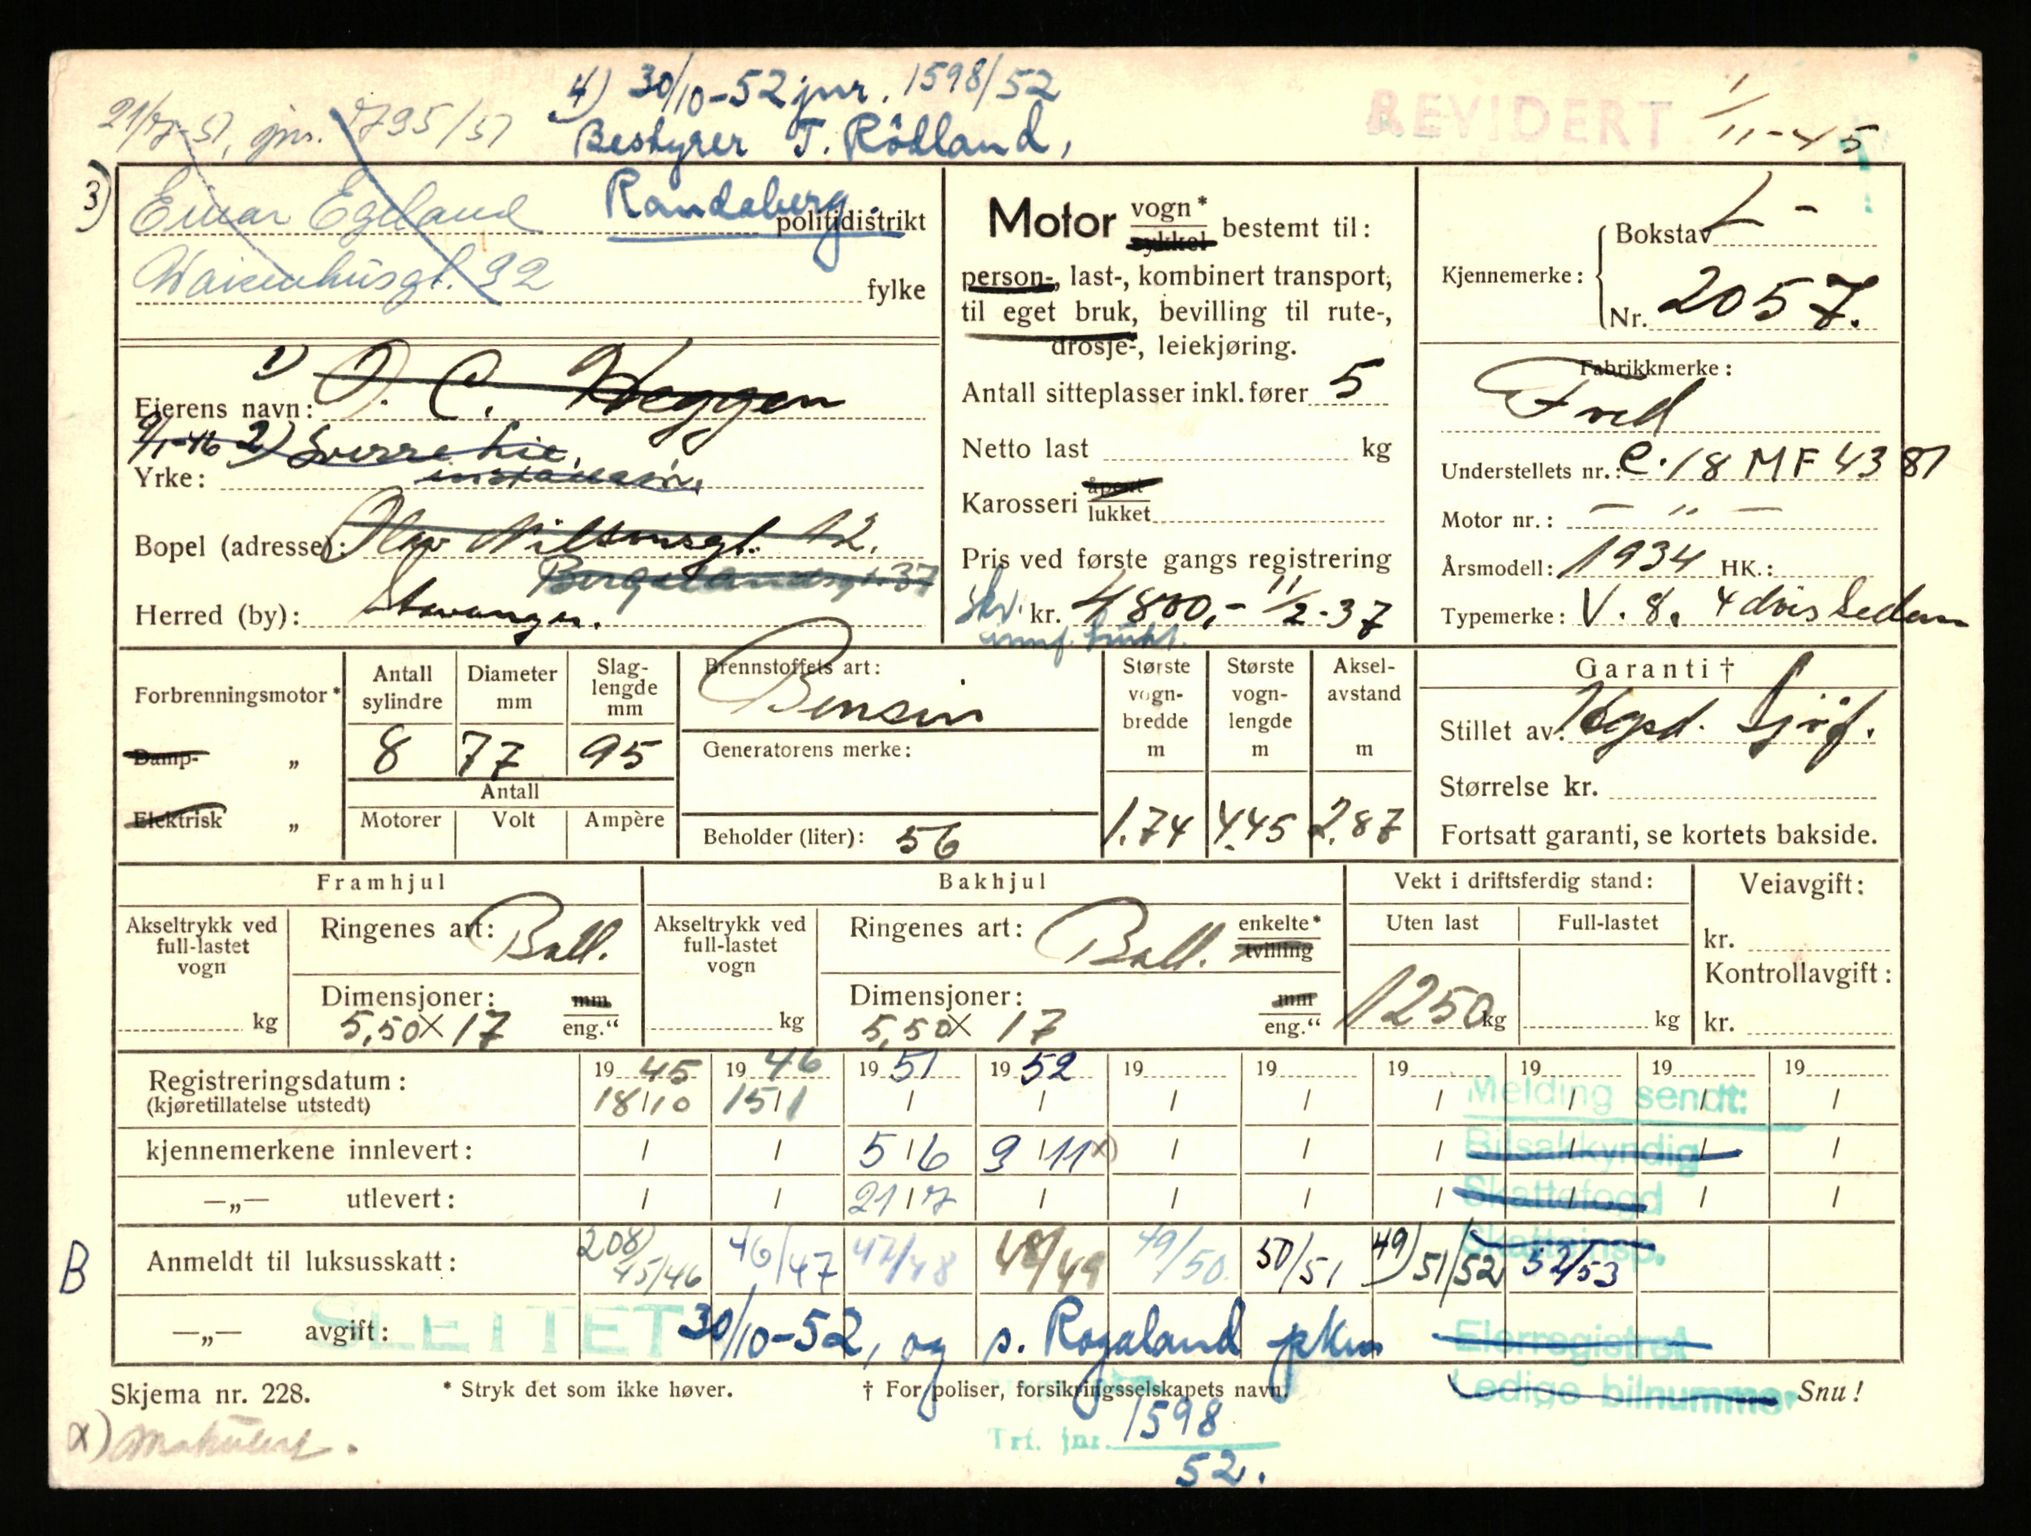 4) 30/10-52 jnr. 1598/52
21/7-51, jnr. 1795/51
Bestyrer T. Rödland,
REVIDERT 1/11-45
3) Einar Egeland Randaberg. politidistrikt
Waisenhusgt. 92
fylke
1) O. C. Heggen
Eierens navn:
9/1-46 2) Sverre Lie,
Yrke:
Bopel (adresse): Olav Nilsensgt. 12.
Bergelandsgt. 37
Herred (by): Stavanger.
Motor vogn* sykkel bestemt til:
person-, last-, kombinert transport,
til eget bruk, bevilling til rute-,
drosje-, leiekjøring.
Antall sitteplasser inkl. fører 5
Netto last kg
Karosseri åpent lukket
Pris ved første gangs registrering
kr. 4800,- 11/2-37
Kjennemerke: Bokstav L-
Nr. 2057.
Fabrikkmerke:
Ford
Understellets nr.: C.18 MF 4381
Motor nr.: — " —
Årsmodell: 1934 HK.:
Typemerke: V. 8. 4 dørs Sedan
Forbrenningsmotor*
Damp- „
Elektrisk „
Antall sylindre Diameter mm Slag-lengde mm
8 77 95
Antall
Motorer Volt Ampère
Brennstoffets art:
Bensin
Generatorens merke:
Beholder (liter): 56
Største vogn-bredde m Største vogn-lengde m Aksel-avstand m
1.74 4.45 2.87
Garanti †
Stillet av:
Størrelse kr.
Fortsatt garanti, se kortets bakside.
Framhjul
Akseltrykk ved full-lastet vogn
kg
Ringenes art: Ball.
Dimensjoner: mm
5,50 x 17 eng.“
Bakhjul
Akseltrykk ved full-lastet vogn
kg
Ringenes art: Ball. enkelte* tvilling
Dimensjoner: mm
5,50 x 17 eng.“
Vekt i driftsferdig stand:
Uten last Full-lastet
1250 kg kg
Veiavgift:
kr.
Kontrollavgift:
kr.
19 45 19 46 19 51 19 52 19 19 19 19 19 19
Registreringsdatum:
(kjøretillatelse utstedt) 18/10 15/1 / / / / / / / /
Melding sendt:
kjennemerkene innlevert: / / 5/6 9/11 x) / / / / / /
Bilsakkyndig
—„— utlevert: / / 21/7 / / / / / / /
Skattefogd
Skatteinsp.
B Anmeldt til luksusskatt: 208) 45/46 46/47 47/48 48/49 49/50 50/51 49) 51/52 52/53
SLETTET 30/10-52, og s. Rogaland pkm
—„— avgift:
Eierregistret
Skjema nr. 228. * Stryk det som ikke høver. † For poliser, forsikringsselskapets navn. Ledige bilnummer Snu!
x) Makulert.
Trf. jnr. 1598
52.